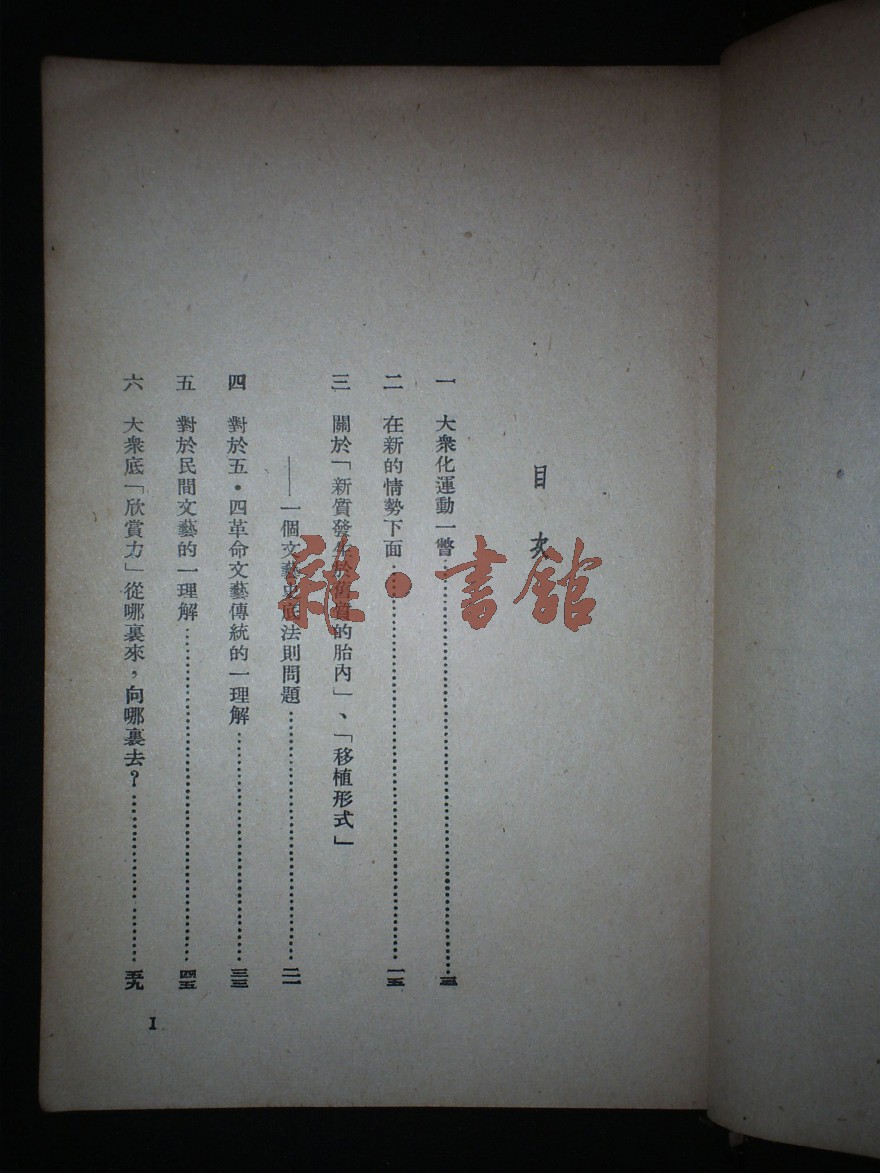 目次
一 大衆化運動一瞥……三
二 在新的情勢下面……一五
三 關於「新質發生於舊質的胎內」、「移植形式」
——一個文藝史底法則問題……二一
四 對於五·四革命文藝傳統的一理解……三三
五 對於民間文藝的一理解……四五
六 大衆底「欣賞力」從哪裏來，向哪裏去？……五九
I
雜·書館